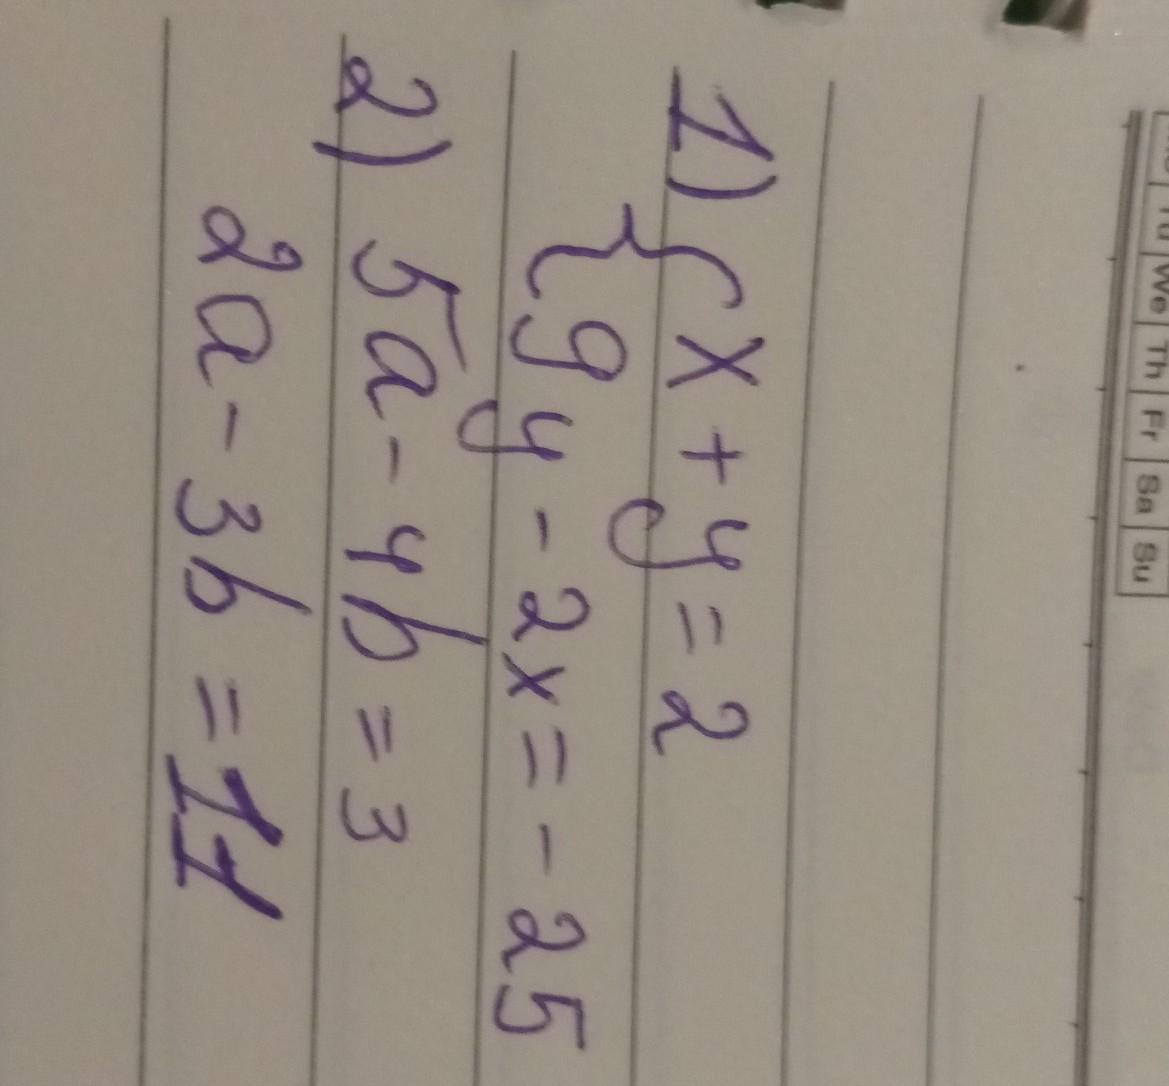 Tu We Th Fr Sa Su
1) { x + y = 2
9y - 2x = - 25
2) 5a - 4b = 3
2a - 3b = 11